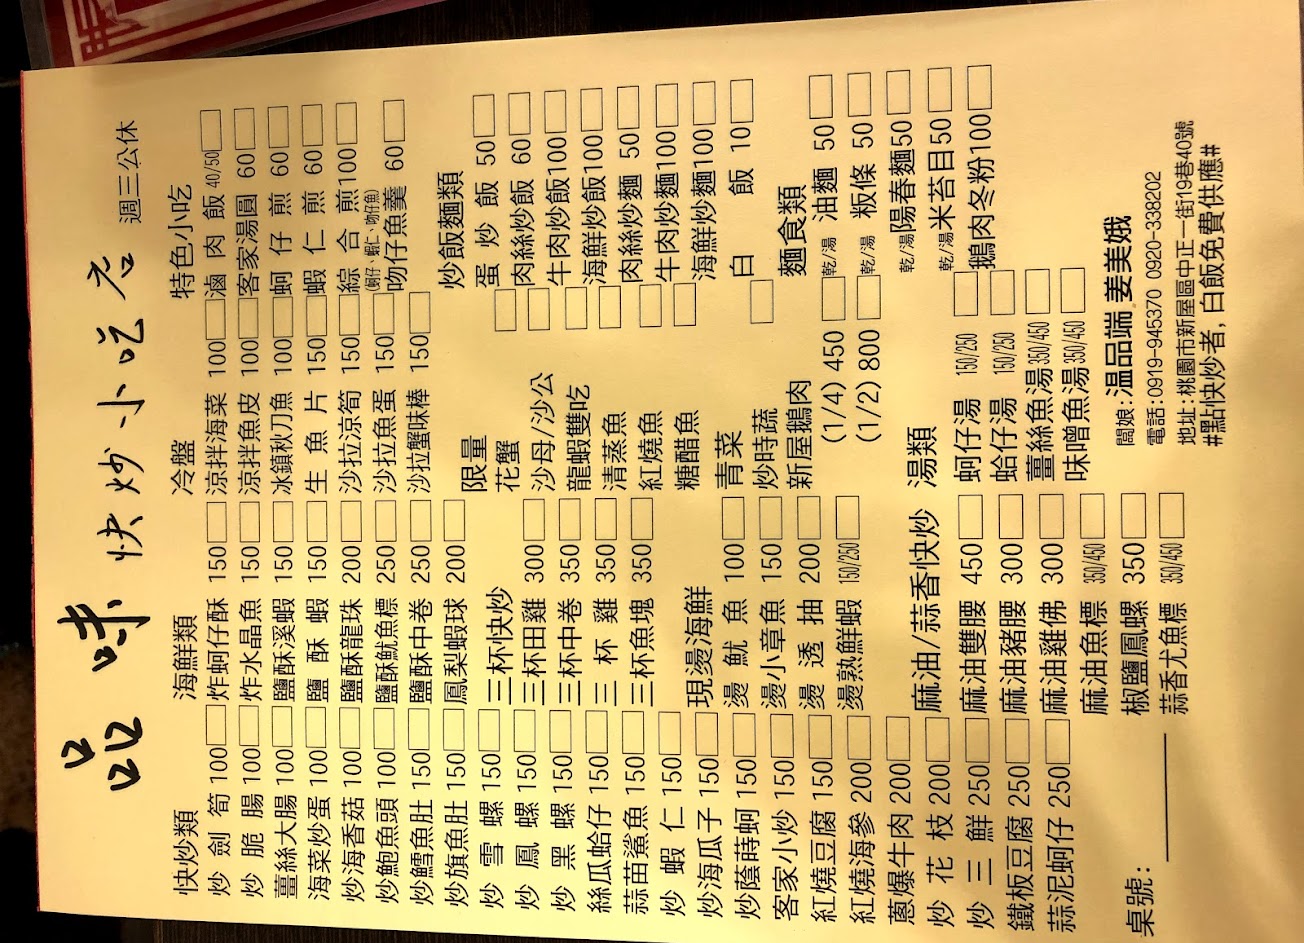 品味快炒小吃店
週三公休
快炒類
炒劍筍 100
炒脆腸 100
薑絲大腸 100
海菜炒蛋 100
炒海香菇 100
炒鮑魚頭 100
炒鱈魚肚 150
炒旗魚肚 150
炒雪螺 150
炒鳳螺 150
炒黑螺 150
絲瓜蛤仔 150
蒜苗鯊魚 150
炒蝦仁 150
炒海瓜子 150
炒蔭蒔蚵 150
客家小炒 150
紅燒豆腐 150
紅燒海參 200
蔥爆牛肉 200
炒花枝 200
炒三鮮 250
鐵板豆腐 250
蒜泥蚵仔 250
桌號:
海鮮類
炸蚵仔酥 150
炸水晶魚 150
鹽酥溪蝦 150
鹽酥蝦 150
鹽酥龍珠 200
鹽酥魷魚標 250
鹽酥中卷 250
鳳梨蝦球 200
三杯快炒
三杯田雞 300
三杯中卷 350
三杯雞 350
三杯魚塊 350
現燙海鮮
燙魷魚 100
燙小章魚 150
燙透抽 200
燙熟鮮蝦 150/250
麻油/蒜香快炒
麻油雙腰 450
麻油豬腰 300
麻油雞佛 300
麻油魚標 350/450
椒鹽鳳螺 350
蒜香尤魚標 350/450
冷盤
涼拌海菜 100
涼拌魚皮 100
冰鎮秋刀魚 100
生魚片 150
沙拉涼筍 150
沙拉魚蛋 150
沙拉蟹味棒 150
限量
花蟹
沙母/沙公
龍蝦雙吃
清蒸魚
紅燒魚
糖醋魚
青菜
炒時蔬
新屋鵝肉
(1/4) 450
(1/2) 800
湯類
蚵仔湯 150/250
蛤仔湯 150/250
薑絲魚湯 350/450
味噌魚湯 350/450
特色小吃
滷肉飯 40/50
客家湯圓 60
蚵仔煎 60
蝦仁煎 60
綜合煎 100
(蚵仔、蝦仁、吻仔魚)
吻仔魚羹 60
炒飯麵類
蛋炒飯 50
肉絲炒飯 60
牛肉炒飯 100
海鮮炒飯 100
肉絲炒麵 50
牛肉炒麵 100
海鮮炒麵 100
白飯 10
麵食類
乾/湯 油麵 50
乾/湯 粄條 50
乾/湯 陽春麵 50
乾/湯 米苔目 50
鵝肉冬粉 100
闆娘: 溫品端 姜美娥
電話:0919-945370 0920-338202
地址:桃園市新屋區中正一街19巷40號
#點快炒者, 白飯免費供應#